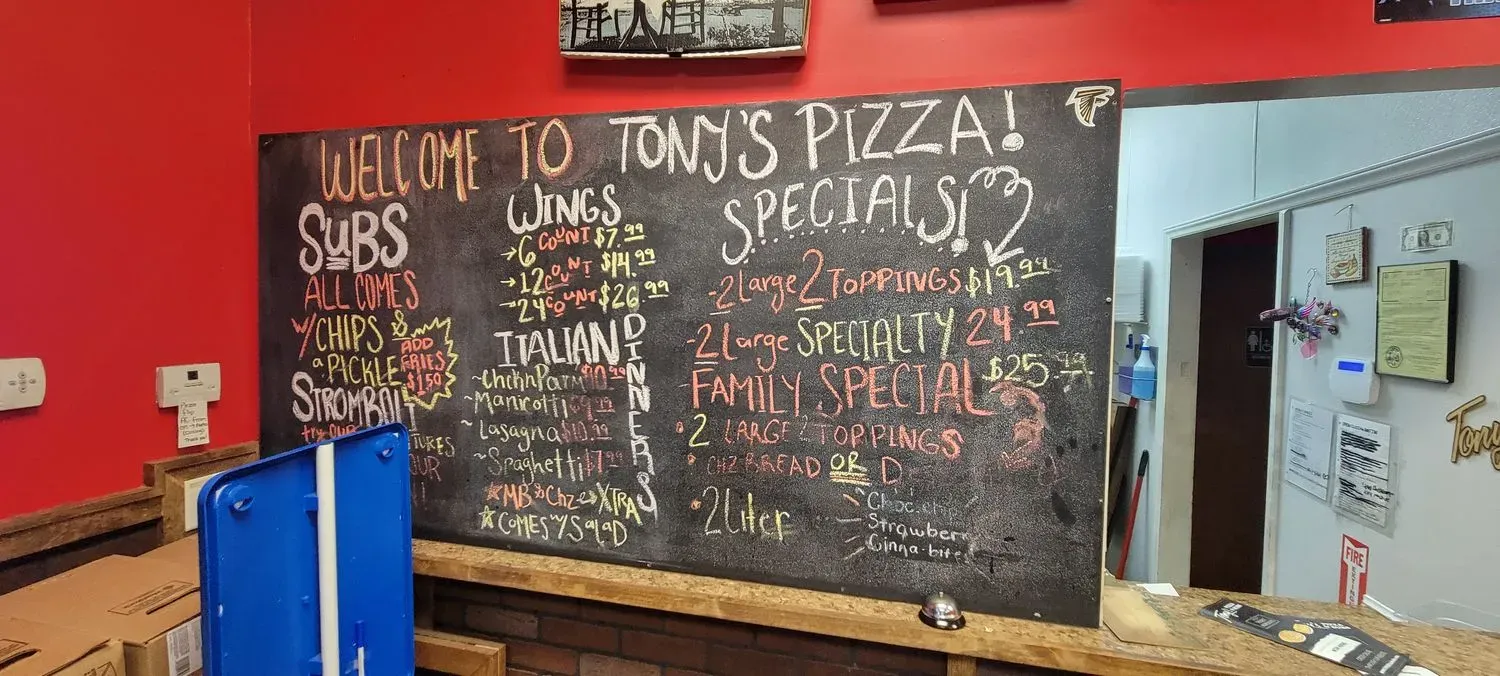 WELCOME TO TONY'S PIZZA!
SUBS
ALL COMES
W/CHIPS &
a PICKLE
ADD
FRIES
$1.50
STROMBOLI
try OUR
TURES
OUR
WINGS
→6 COUNT $7.99
→12 COUNT $14.99
→24 COUNT $26.99
ITALIAN
DINNERS
~ChcknParm $10.99
~Manicotti $9.99
~Lasagna $10.99
~Spaghetti $7.99
*MB & Chz → XTRA
*COMES W/ SALAD
SPECIALS!
-2 Large 2 TOPPINGS $19.99
-2 Large SPECIALTY 24.99
-FAMILY SPECIAL $25.99
• 2 LARGE 2 TOPPINGS
• CHZ BREAD OR D
• 2 Liter
Choc.chip
Strawber
Cinna-bite
Tony
FIRE